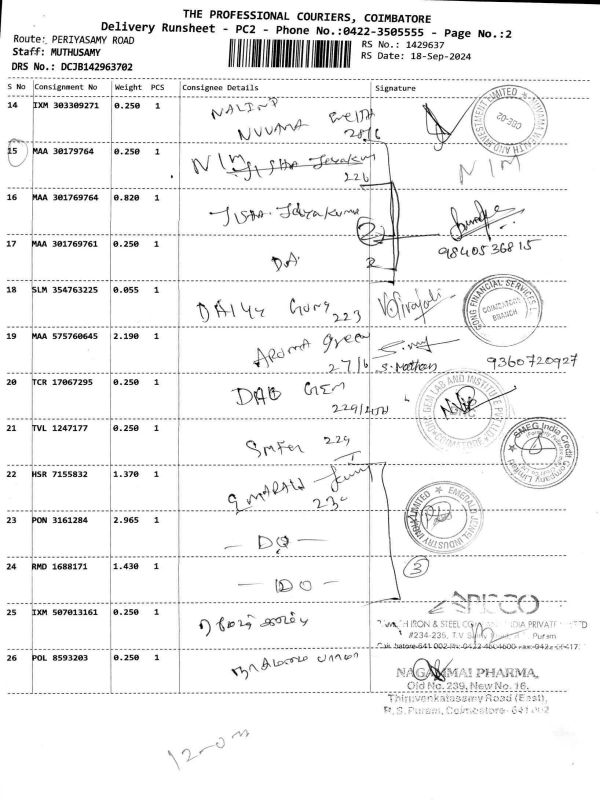 THE PROFESSIONAL COURIERS, COIMBATORE
Delivery Runsheet - PC2 - Phone No.:0422-3505555 - Page No.:2
Route: PERIYASAMY ROAD
RS No.: 1429637
Staff: MUTHUSAMY
RS Date: 18-Sep-2024
DRS No.: DCJB142963702
S No Consignment No Weight PCS Consignee Details Signature
14 IXM 303309271 0.250 1 NALIND
NUVAMA 2016
15 MAA 30179764 0.250 1 NIM Jisha Jeyakum
226
NIM
16 MAA 301769764 0.820 1 Jisha Jeyakuma
2
17 MAA 301769761 0.250 1 DA 2
9840536815
18 SLM 354763225 0.055 1 DAILY Gong 223
GONG FINANCIAL SERVICES
COIMBATORE
BRANCH
19 MAA 575760645 2.190 1 AROMA Green
27/6 S. Mathan 9360720927
20 TCR 17067295 0.250 1 DAO GEM
229/
GEM LAB AND INSTITUTE PVT LTD
COIMBATORE
21 TVL 1247177 0.250 1 229
SMEG India Credit
Company Limited
22 HSR 7155832 1.370 1 EMARALD
230
EMERALD JEWEL INDUSTRY INDIA LIMITED
23 PON 3161284 2.965 1 - DO -
24 RMD 1688171 1.430 1 - DO -
3
25 IXM 507013161 0.250 1
IRON & STEEL
INDIA PRIVATE
#234-235, T.V.
Puram
26 POL 8593203 0.250 1
NAGAMMAI PHARMA,
Old No. 239, New No. 16,
Thiruvenkatassamy Road (East),
R. S. Puram, Coimbatore - 641 002